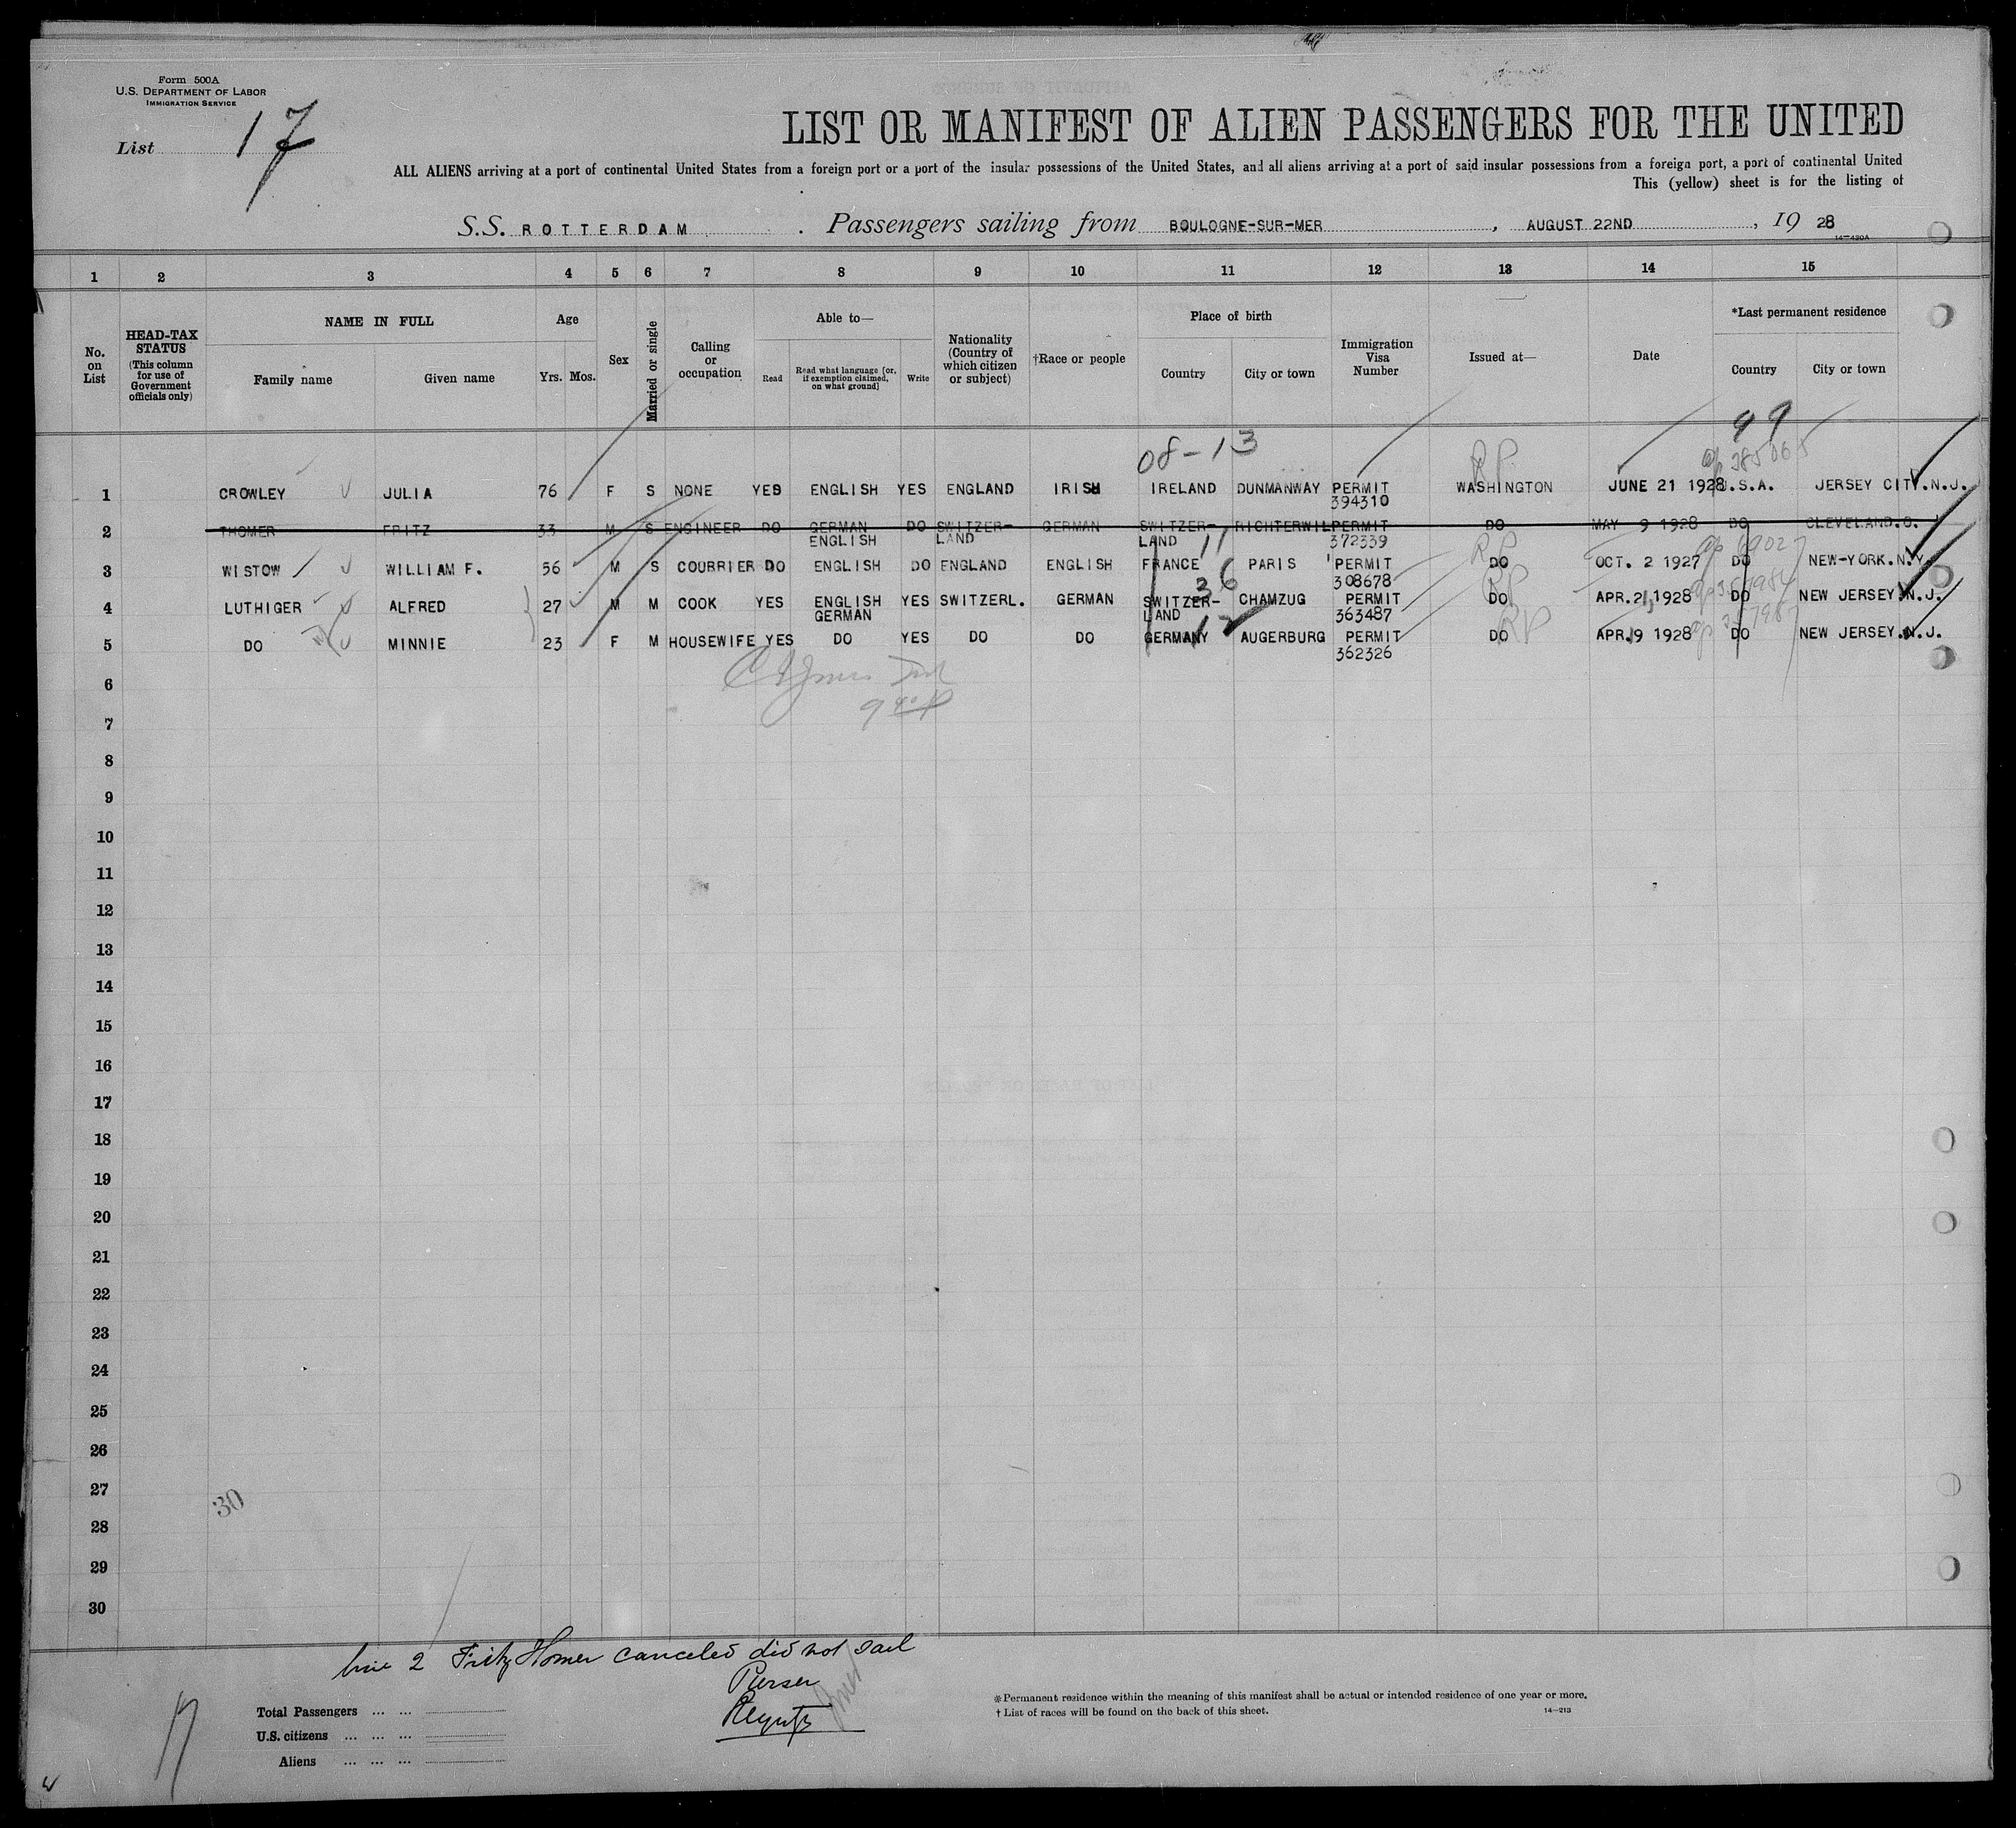 Form 500A
U.S. DEPARTMENT OF LABOR
IMMIGRATION SERVICE
List 17
LIST OR MANIFEST OF ALIEN PASSENGERS FOR THE UNITED
ALL ALIENS arriving at a port of continental United States from a foreign port or a port of the insular possessions of the United States, and all aliens arriving at a port of said insular possessions from a foreign port, a port of continental United
This (yellow) sheet is for the listing of
S.S. ROTTERDAM . Passengers sailing from BOULOGNE-SUR-MER , AUGUST 22ND , 19 28
14—420A
1 2 3 4 5 6 7 8 9 10 11 12 13 14 15
No. on List
HEAD-TAX STATUS (This column for use of Government officials only)
NAME IN FULL
Family name Given name
Age
Yrs. Mos.
Sex
Married or single
Calling or occupation
Able to—
Read Read what language [or, if exemption claimed, on what ground] Write
Nationality (Country of which citizen or subject)
†Race or people
Place of birth
Country City or town
Immigration Visa Number
Issued at—
Date
*Last permanent residence
Country City or town
99
08-13 RP 385065
1 CROWLEY JULIA 76 F S NONE YES ENGLISH YES ENGLAND IRISH IRELAND DUNMANWAY PERMIT 394310 WASHINGTON JUNE 21 1928 U.S.A. JERSEY CITY.N.J.
2 THOMER FRITZ 33 M S ENGINEER DO GERMAN ENGLISH DO SWITZER-LAND GERMAN SWITZER-LAND RICHTERWIL PERMIT 372339 DO MAY 9 1928 DO CLEVELAND.O.
11 RP
3 WISTOW WILLIAM F. 56 M S COURRIER DO ENGLISH DO ENGLAND ENGLISH FRANCE PARIS PERMIT 308678 DO OCT. 2 1927 DO NEW-YORK.N.Y.
36 RP
4 LUTHIGER ALFRED 27 M M COOK YES ENGLISH GERMAN YES SWITZERL. GERMAN SWITZER-LAND CHAMZUG PERMIT 363487 DO APR.21,1928 DO NEW JERSEY.N.J.
12 RP
5 DO MINNIE 23 F M HOUSEWIFE YES DO YES DO DO GERMANY AUGERBURG PERMIT 362326 DO APR.19 1928 DO NEW JERSEY.N.J.
6
7
8
9
10
11
12
13
14
15
16
17
18
19
20
21
22
23
24
25
26
27
30
28
29
30
line 2 Fritz Homer canceled did not sail
Purser
Total Passengers ... ...
U.S. citizens ... ... ...
Aliens ... ... ...
17
*Permanent residence within the meaning of this manifest shall be actual or intended residence of one year or more.
† List of races will be found on the back of this sheet.
14—213